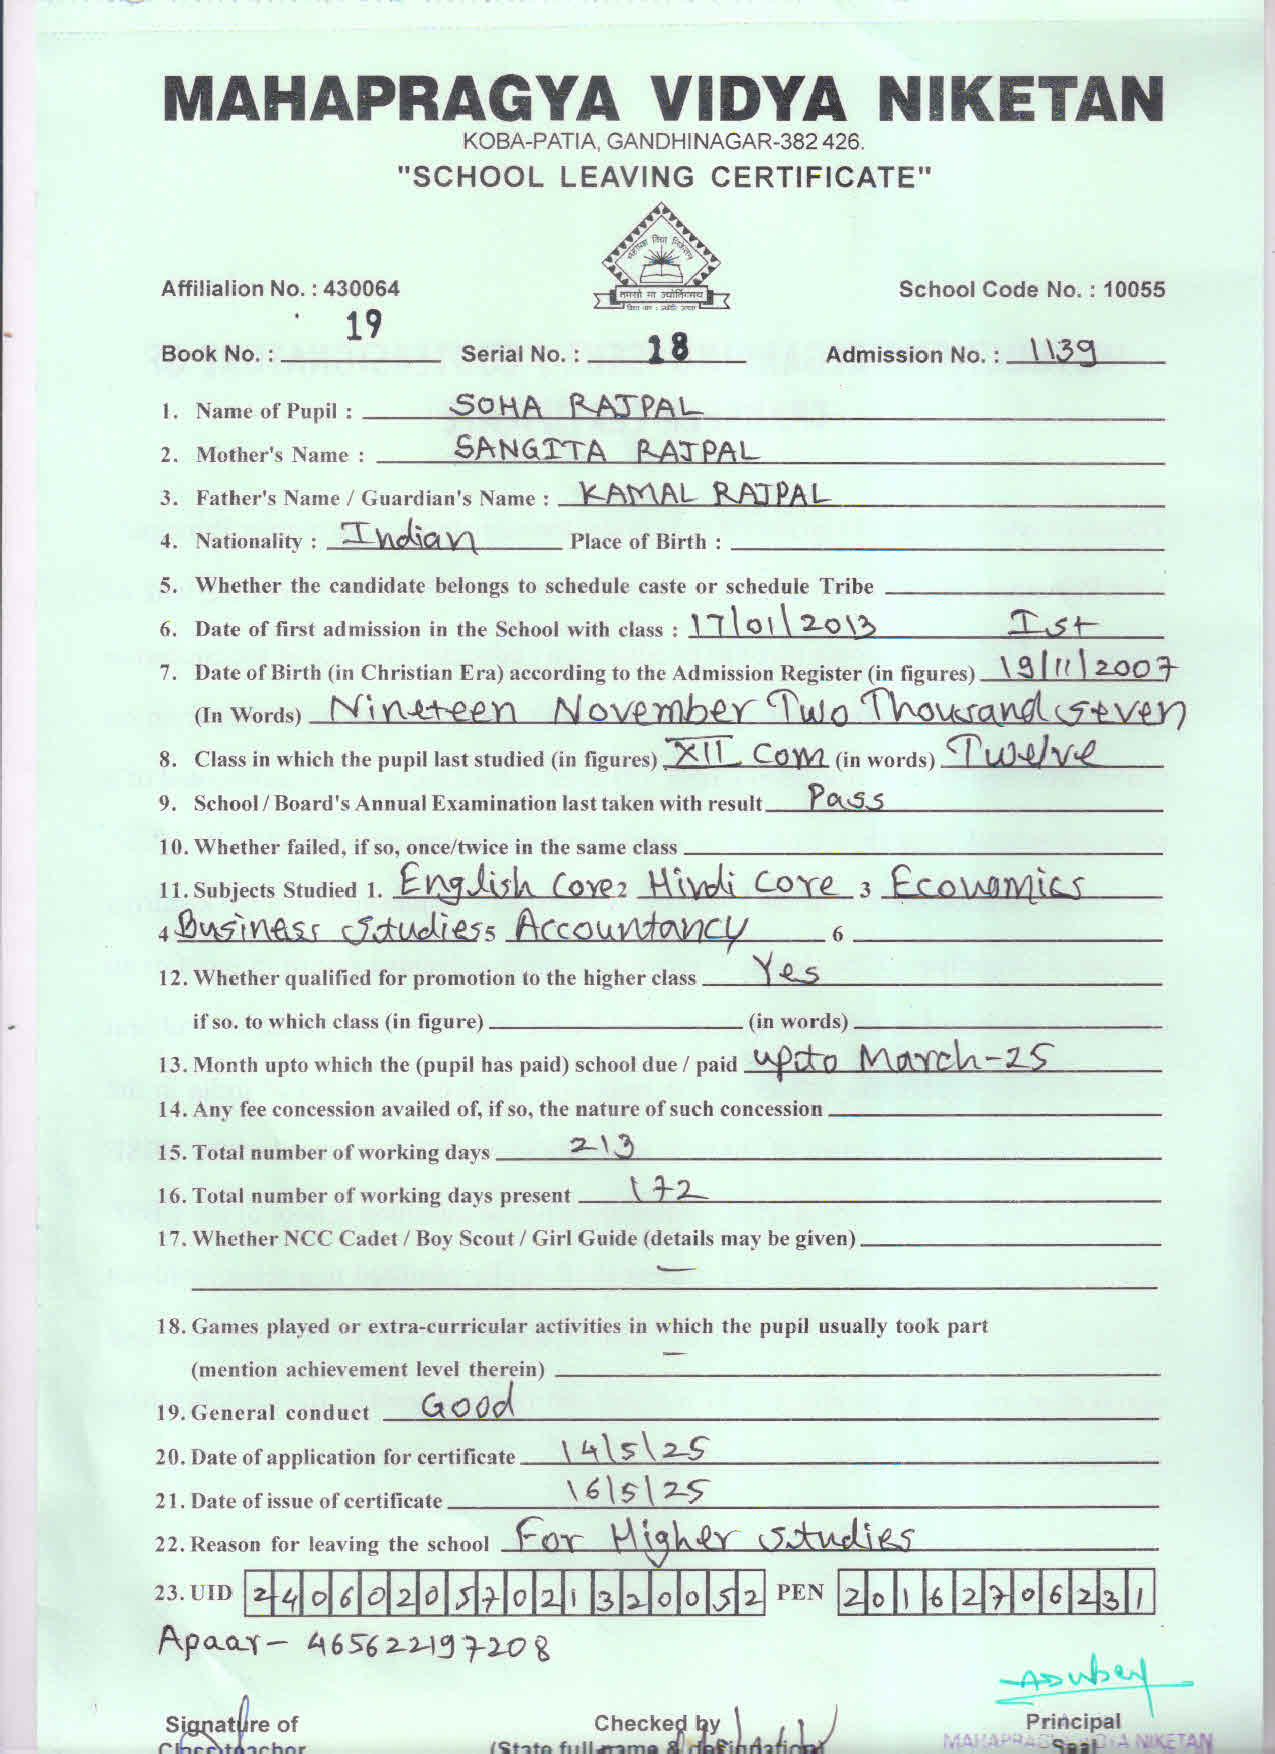 MAHAPRAGYA VIDYA NIKETAN
KOBA-PATIA, GANDHINAGAR-382 426.
"SCHOOL LEAVING CERTIFICATE"
महाप्रज्ञ विद्या निकेतन
तमसो मा ज्योतिर्गमय
Affilialion No. : 430064 School Code No. : 10055
Book No. : 19 Serial No. : 18 Admission No. : 1139
1. Name of Pupil : SOHA RAJPAL
2. Mother's Name : SANGITA RAJPAL
3. Father's Name / Guardian's Name : KAMAL RAJPAL
4. Nationality : Indian Place of Birth :
5. Whether the candidate belongs to schedule caste or schedule Tribe
6. Date of first admission in the School with class : 17/01/2013 Ist
7. Date of Birth (in Christian Era) according to the Admission Register (in figures) 19/11/2007
(In Words) Nineteen November Two Thousand Seven
8. Class in which the pupil last studied (in figures) XII Com (in words) Twelve
9. School / Board's Annual Examination last taken with result Pass
10. Whether failed, if so, once/twice in the same class
11. Subjects Studied 1. English Core 2 Hindi Core 3 Economics
4 Business Studies 5 Accountancy 6
12. Whether qualified for promotion to the higher class Yes
if so. to which class (in figure) (in words)
13. Month upto which the (pupil has paid) school due / paid upto March-25
14. Any fee concession availed of, if so, the nature of such concession
15. Total number of working days 213
16. Total number of working days present 172
17. Whether NCC Cadet / Boy Scout / Girl Guide (details may be given)
18. Games played or extra-curricular activities in which the pupil usually took part
(mention achievement level therein)
19. General conduct Good
20. Date of application for certificate 14/5/25
21. Date of issue of certificate 16/5/25
22. Reason for leaving the school For Higher Studies
23. UID 240602057021320052 PEN 20162706231
Apaar- 465622197208
ADubey
Signature of Checked by Principal
Class teacher (State full name & designation) Seal
MAHAPRAGYA VIDYA NIKETAN